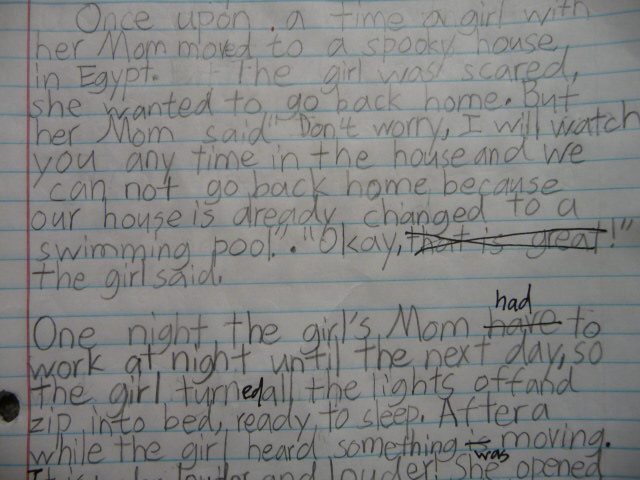 Once upon a time a girl with
her Mom moved to a spooky house
in Egypt. The girl was scared,
she wanted to go back home. But
her Mom said" Don't worry, I will watch
you any time in the house and we
can not go back home because
our house is dready changed to a
swimming pool.". "Okay, that is great!"
the girl said.
had
One night the girl's Mom have to
work at night until the next day, so
the girl turned all the lights off and
zip into bed, ready to sleep. After a
while the girl heard something is moving.
was
louder and louder! She opened